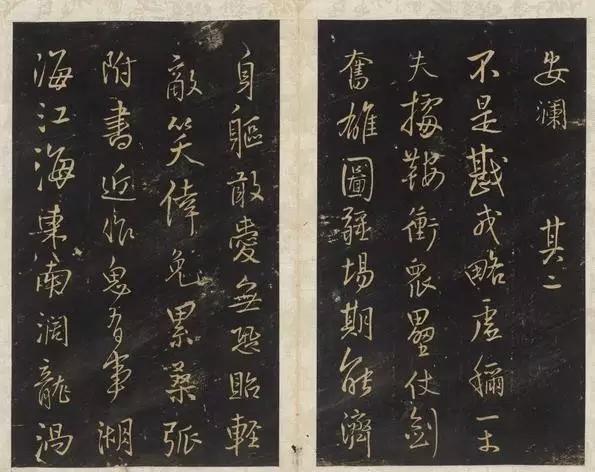 安瀾 其二
不是戡戎略虛稱一丈
夫據鞍衝眾壘仗劍
奮雄圖疆場期能濟
身軀敢愛無恐貽輕
敵笑倖免累桑弧
附書近事湖
海江海東南闊龍渦